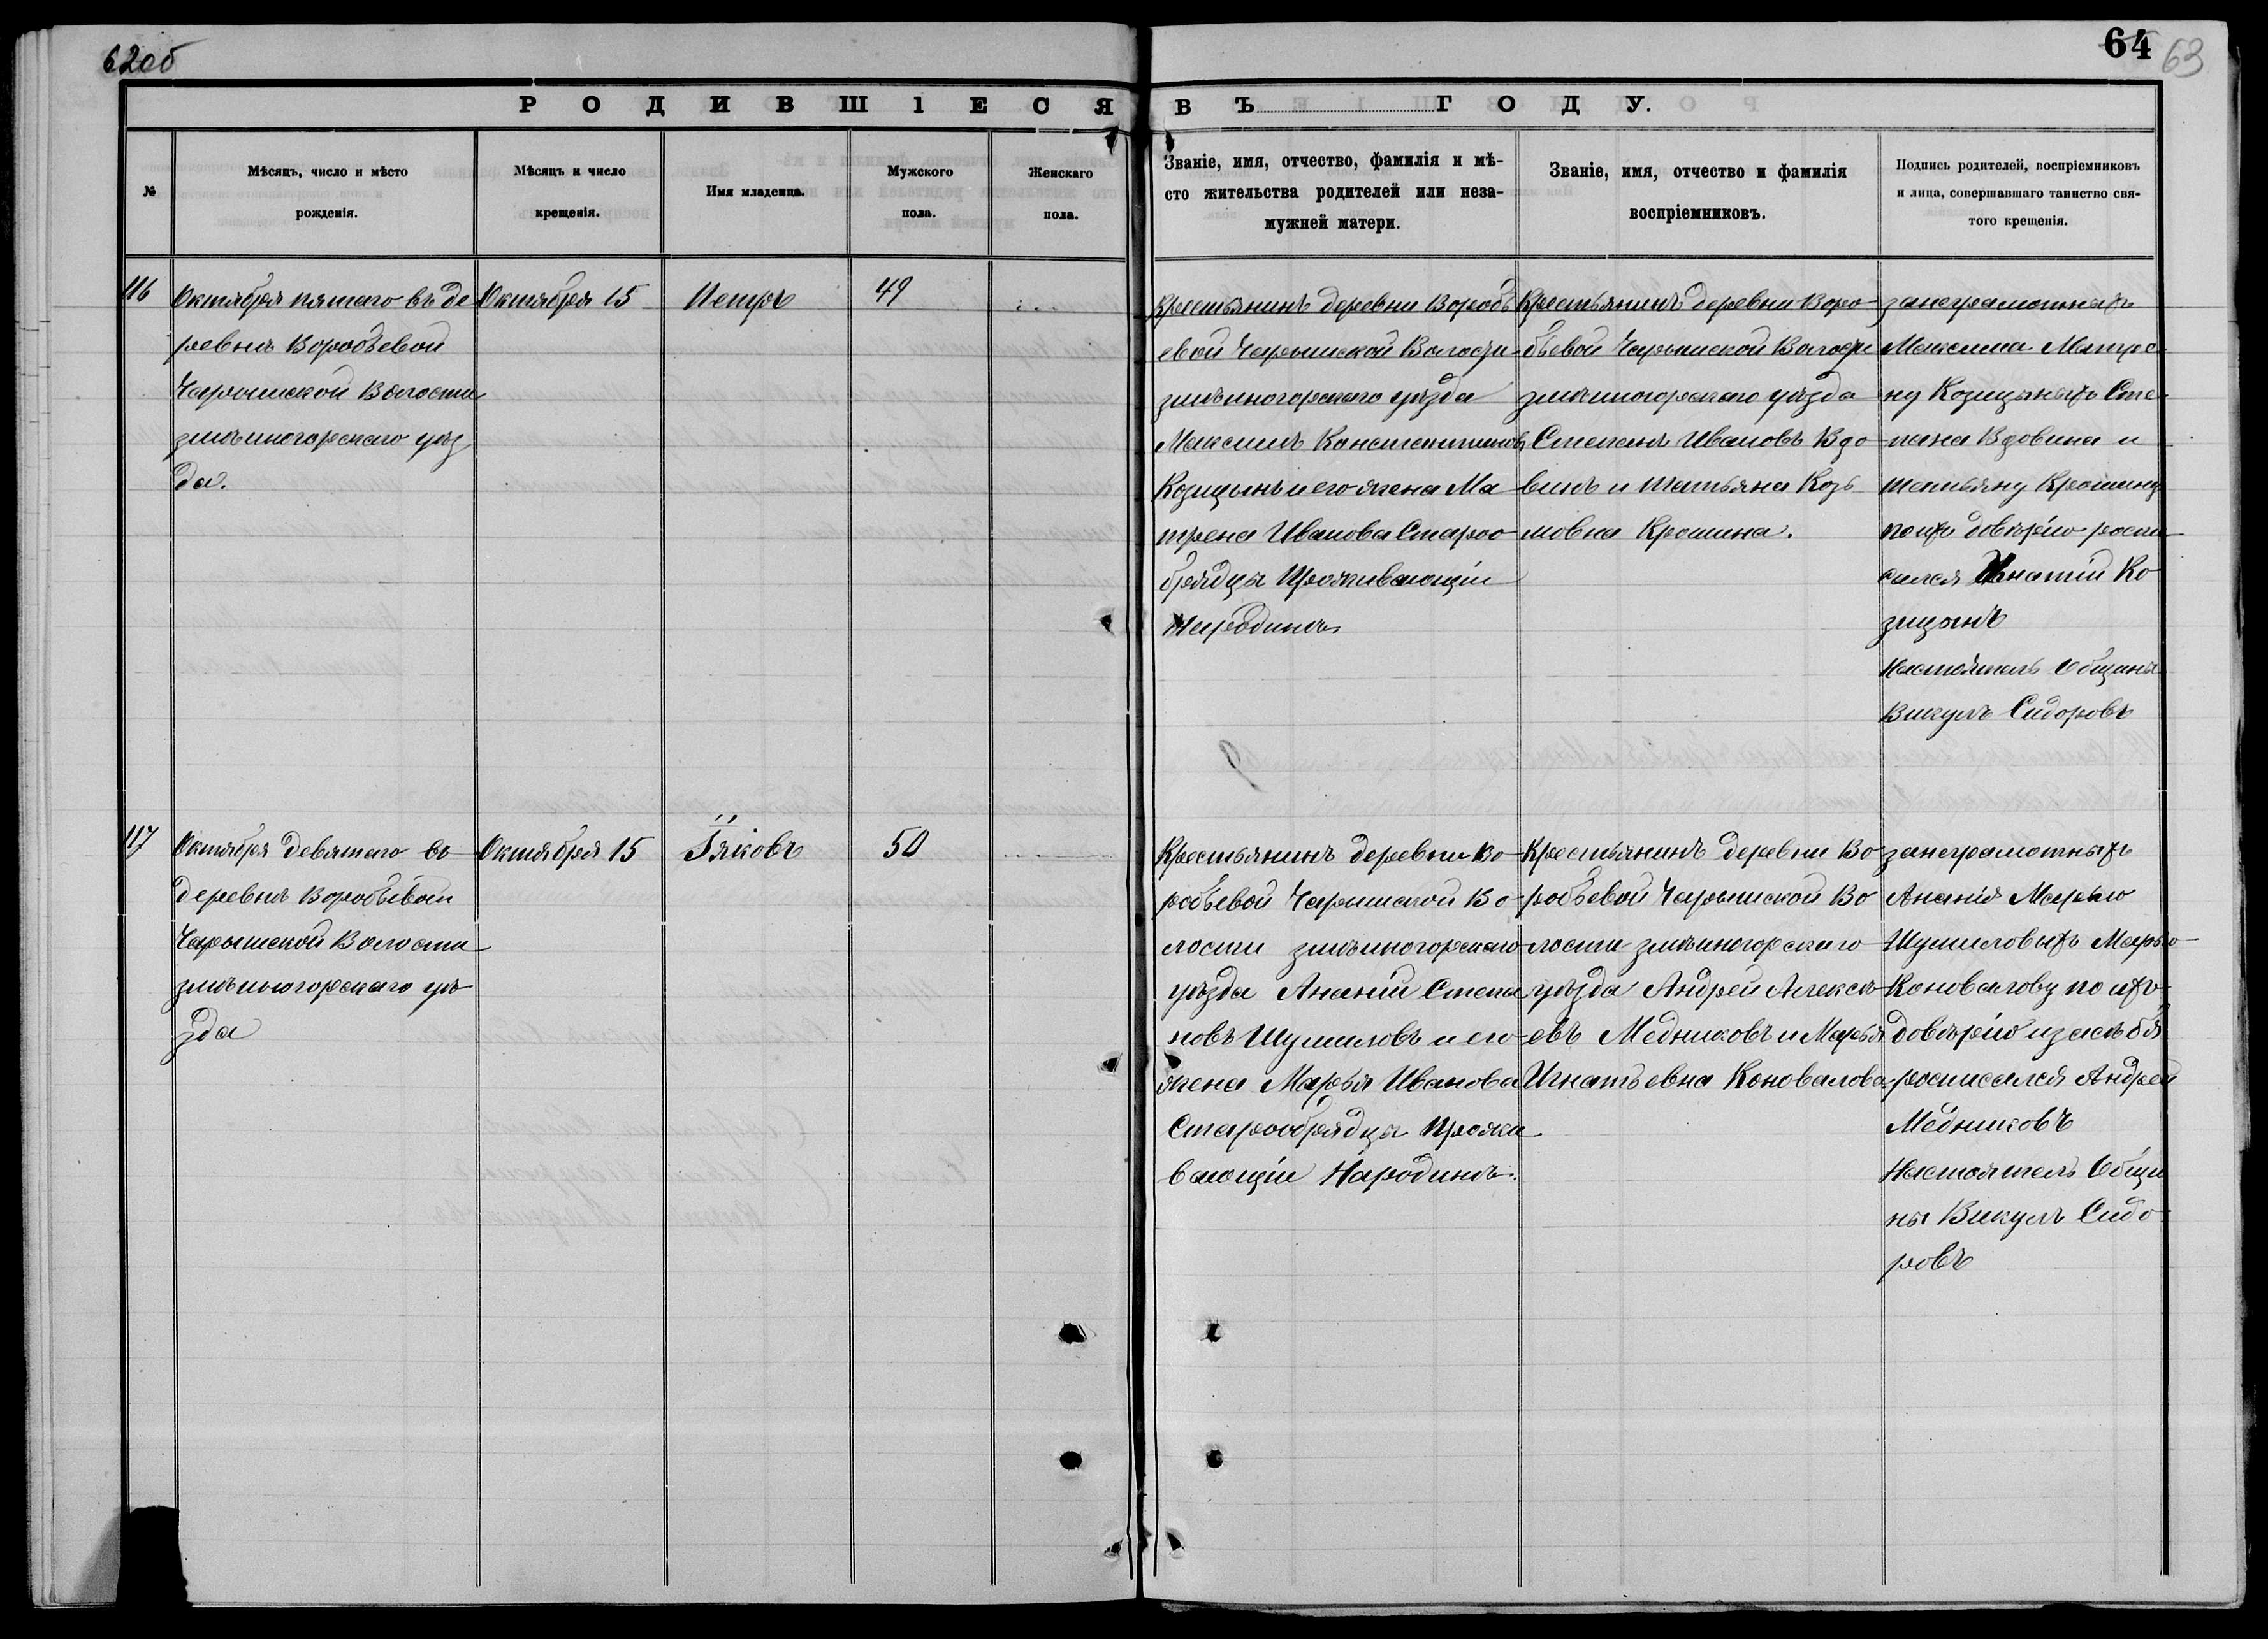 62об
64
63
РОДИВШІЕСЯ ВЪ ГОДУ.
№
Мѣсяцъ, число и мѣсто
рожденія.
Мѣсяцъ и число
крещенія.
Имя младенца.
Мужского
пола.
Женскаго
пола.
Званіе, имя, отчество, фамилія и мѣ-
сто жительства родителей или неза-
мужней матери.
Званіе, имя, отчество и фамилія
воспріемниковъ.
Подпись родителей, воспріемниковъ
и лица, совершавшаго таинство свя-
того крещенія.
116
Октября пятаго въ де
ревнѣ Воробьевой
Чарышской Волости
змѣиногорскаго уѣз
да.
Октября 15
Петръ
49
Крестьянинъ деревни Воробь
евой Чарышской Волости
змѣиногорскаго уѣзда
Максимъ Константиновъ
Козицынъ и его жена Ма
трена Иванова Староо
брядцы Проживающіи
Народинѣ
Крестьянинъ деревни Воро
бьевой Чарышской Волости
змѣиногорскаго уѣзда
Степанъ Ивановъ Вдо
винъ и Татьяна Козь
мовна Крошина.
занеграмотныхъ
Максима Матре
ну Козицыныхъ Сте
пана Вдовина и
Татьяну Крошину
поихъ довѣрію роспи
сался Игнатій Ко
зицынъ
Настоятель Общины
Викулъ Сидоровъ
117
Октября девятаго въ
деревнѣ Воробьевой
Чарышской Волости
змѣиногорскаго уѣ
зда
Октября 15
Іяковъ
50
Крестьянинъ деревни Во
робьевой Чарышской Во
лости змѣиногорскаго
уѣзда Ананій Степа
новъ Шумиловъ и его
жена Марья Иванова
Старообрядцы Прожи
вающіи Народинѣ.
Крестьянинъ деревни Во
робьевой Чарышской Во
лости змѣиногорскаго
уѣзда Андрей Алексѣ
евъ Медниковъ и Марья
Игнатьевна Коновалова.
занеграмотныхъ
Ананія Марью
Шумиловыхъ Марью
Коновалову по ихъ
довѣрію изасебя
росписался Андрей
Медниковъ
Настоятель Общи
ны Викулъ Сидо
ровъ